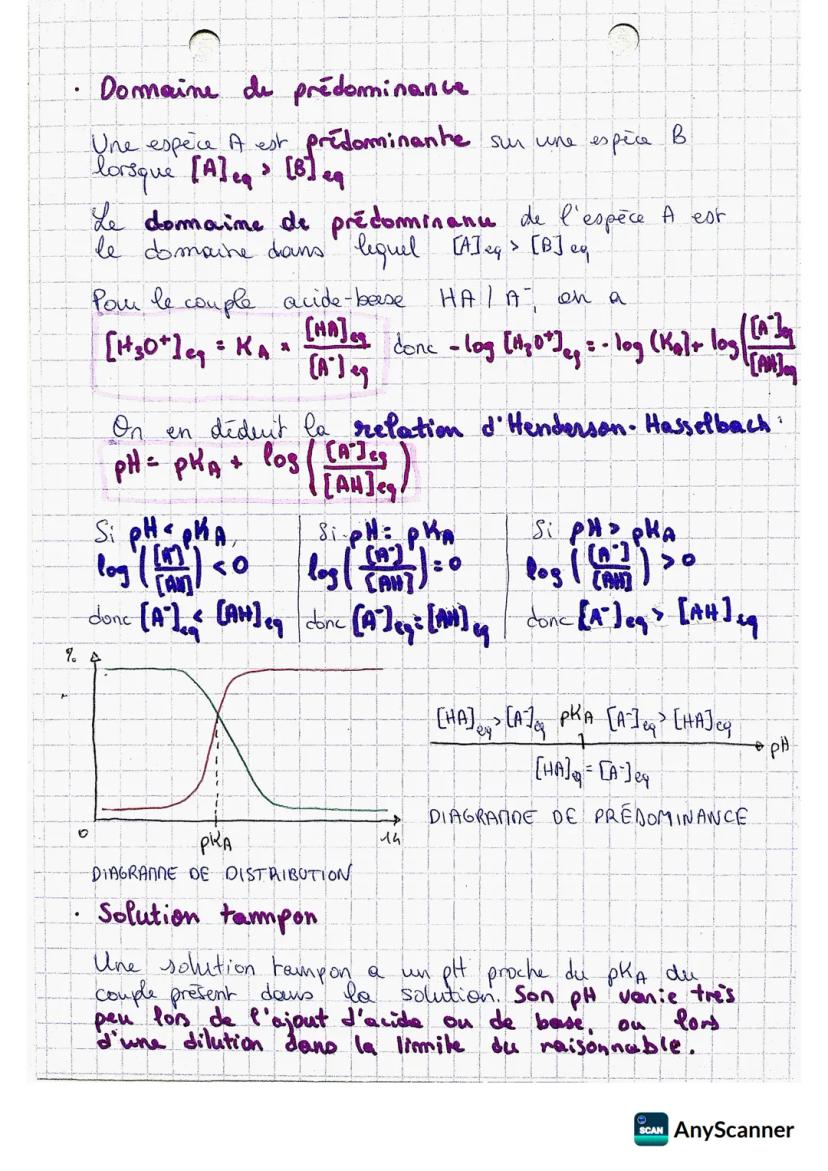 • Domaine de prédominance
Une espèce A est prédominante sur une espèce B
lorsque [A]eq > [B]eq
Le domaine de prédominance de l'espèce A est
le domaine dans lequel [A]eq > [B]eq
Pour le couple acide-base HA / A⁻, on a
[H₃O⁺]eq = KA × [HA]eq / [A⁻]eq donc - log [H₃O⁺]eq = - log (KA) + log ([A⁻]eq / [AH]eq
On en déduit la relation d'Henderson-Hasselbach :
pH = pKA + log ([A⁻]eq / [AH]eq)
Si pH < pKA,
log ([A⁻] / [AH]) < 0
donc [A⁻]eq < [AH]eq
Si pH = pKA
log ([A⁻] / [AH]) = 0
donc [A⁻]eq = [AH]eq
Si pH > pKA
log ([A⁻] / [AH]) > 0
donc [A⁻]eq > [AH]eq
%
0 pKA 14
DIAGRAMME DE DISTRIBUTION
[HA]eq > [A⁻]eq pKA [A⁻]eq > [HA]eq
pH
[HA]eq = [A⁻]eq
DIAGRAMME DE PRÉDOMINANCE
• Solution tampon
Une solution tampon a un pH proche du pKA du
couple présent dans la solution. Son pH varie très
peu lors de l'ajout d'acide ou de base, ou lors
d'une dilution dans la limite du raisonnable.
SCAN AnyScanner